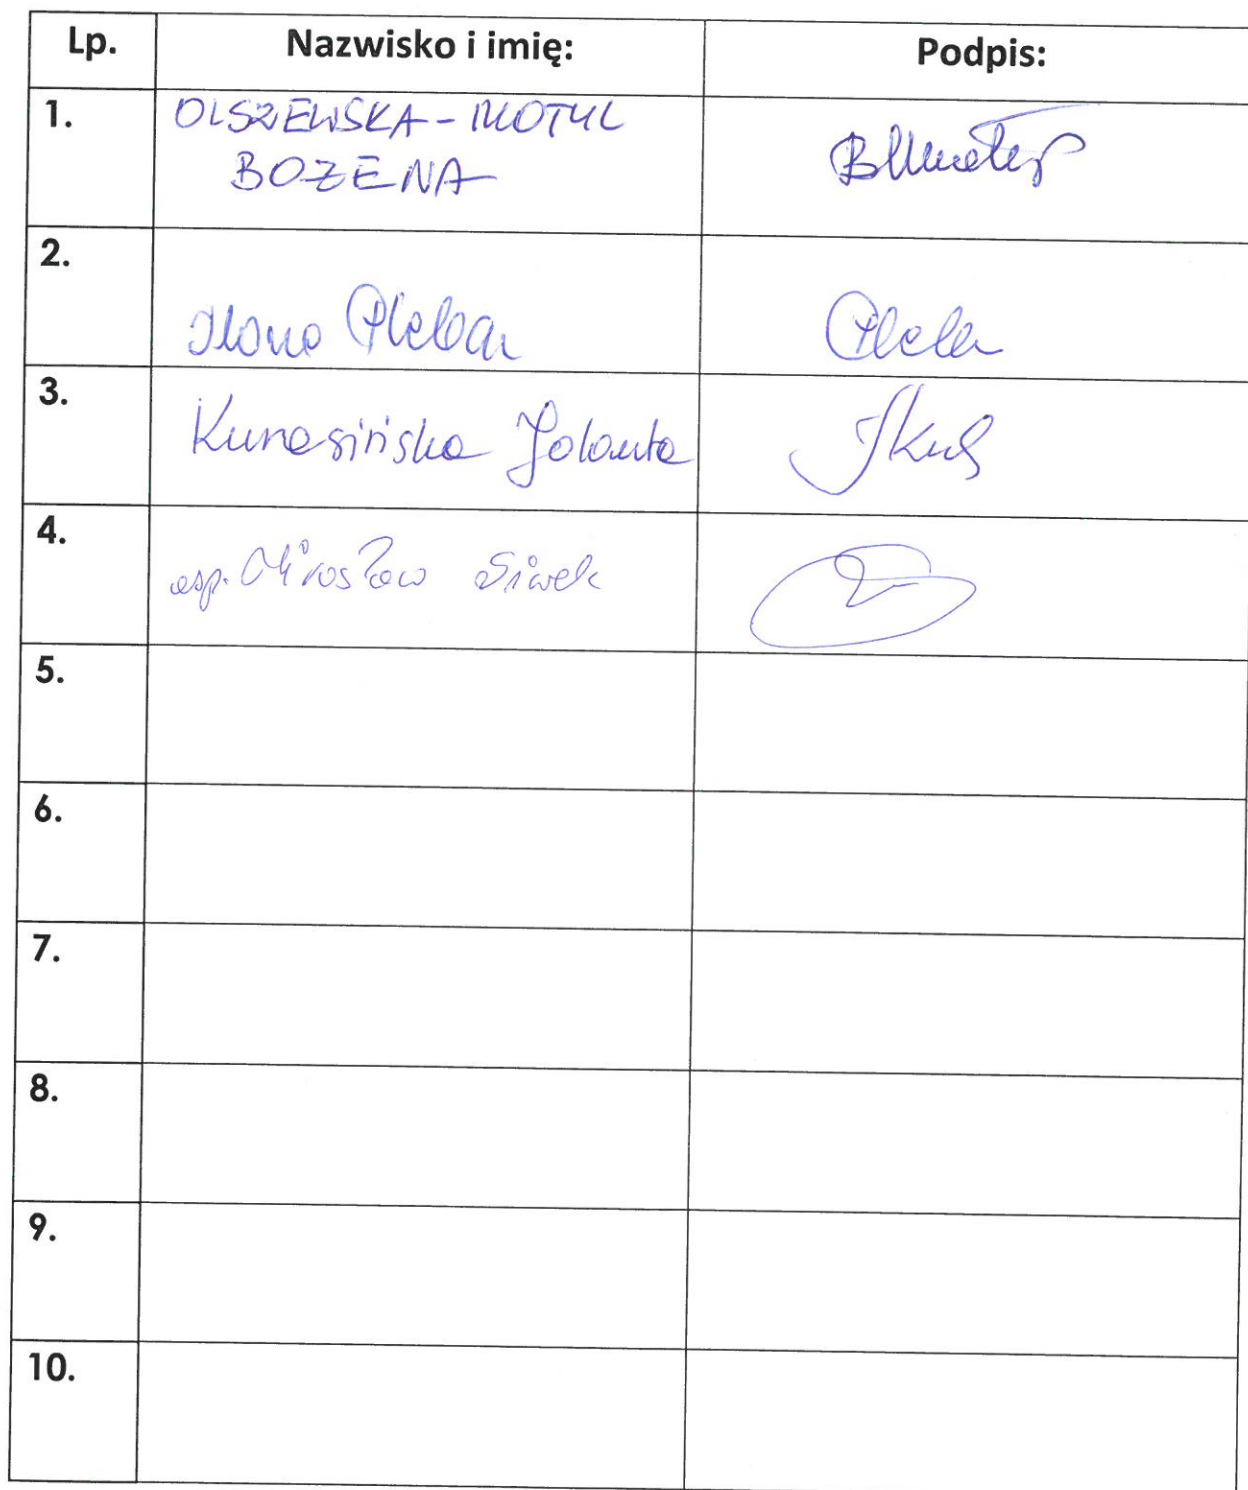 Lp. Nazwisko i imię: Podpis:
1. OLSZEWSKA-MOTYL
BOŻENA
2.
Ilona Pleban
3.
Kunasińska Jolanta
4.
asp. Mirosław Siwek
5.
6.
7.
8.
9.
10.